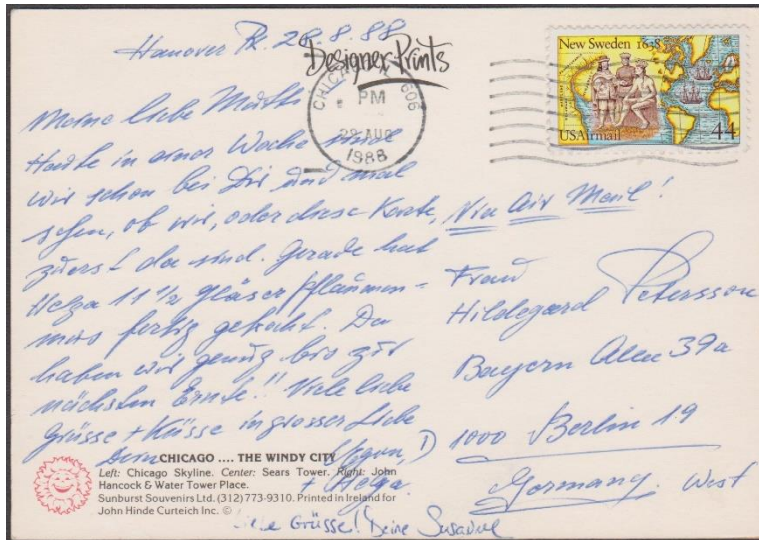 Hanover Pk. 28.8.88
Designer Prints
CHICAGO, IL 606
PM
29 AUG
1988
New Sweden 1638
USAirmail 44
Meine liebe Mutti
Heute in einer Woche sind
wir schon bei Dir und mal
sehen, ob wir, oder diese Karte,
zuerst da sind. Gerade hat
Helga 11 1/2 Gläser Pflaumen-
mus fertig gekocht. Da
haben wir genug bis zur
nächsten Ernte!! Viele liebe
Grüsse + Küsse in grosser Liebe
Dein
+ Helga.
Grüsse! Deine Susanne
Via Air Mail!
Frau
Hildegard Petersson
Bayern Allee 39a
D 1000 Berlin 19
Germany. West
CHICAGO .... THE WINDY CITY
Left: Chicago Skyline. Center: Sears Tower. Right: John
Hancock & Water Tower Place.
Sunburst Souvenirs Ltd. (312) 773-9310. Printed in Ireland for
John Hinde Curteich Inc. ©